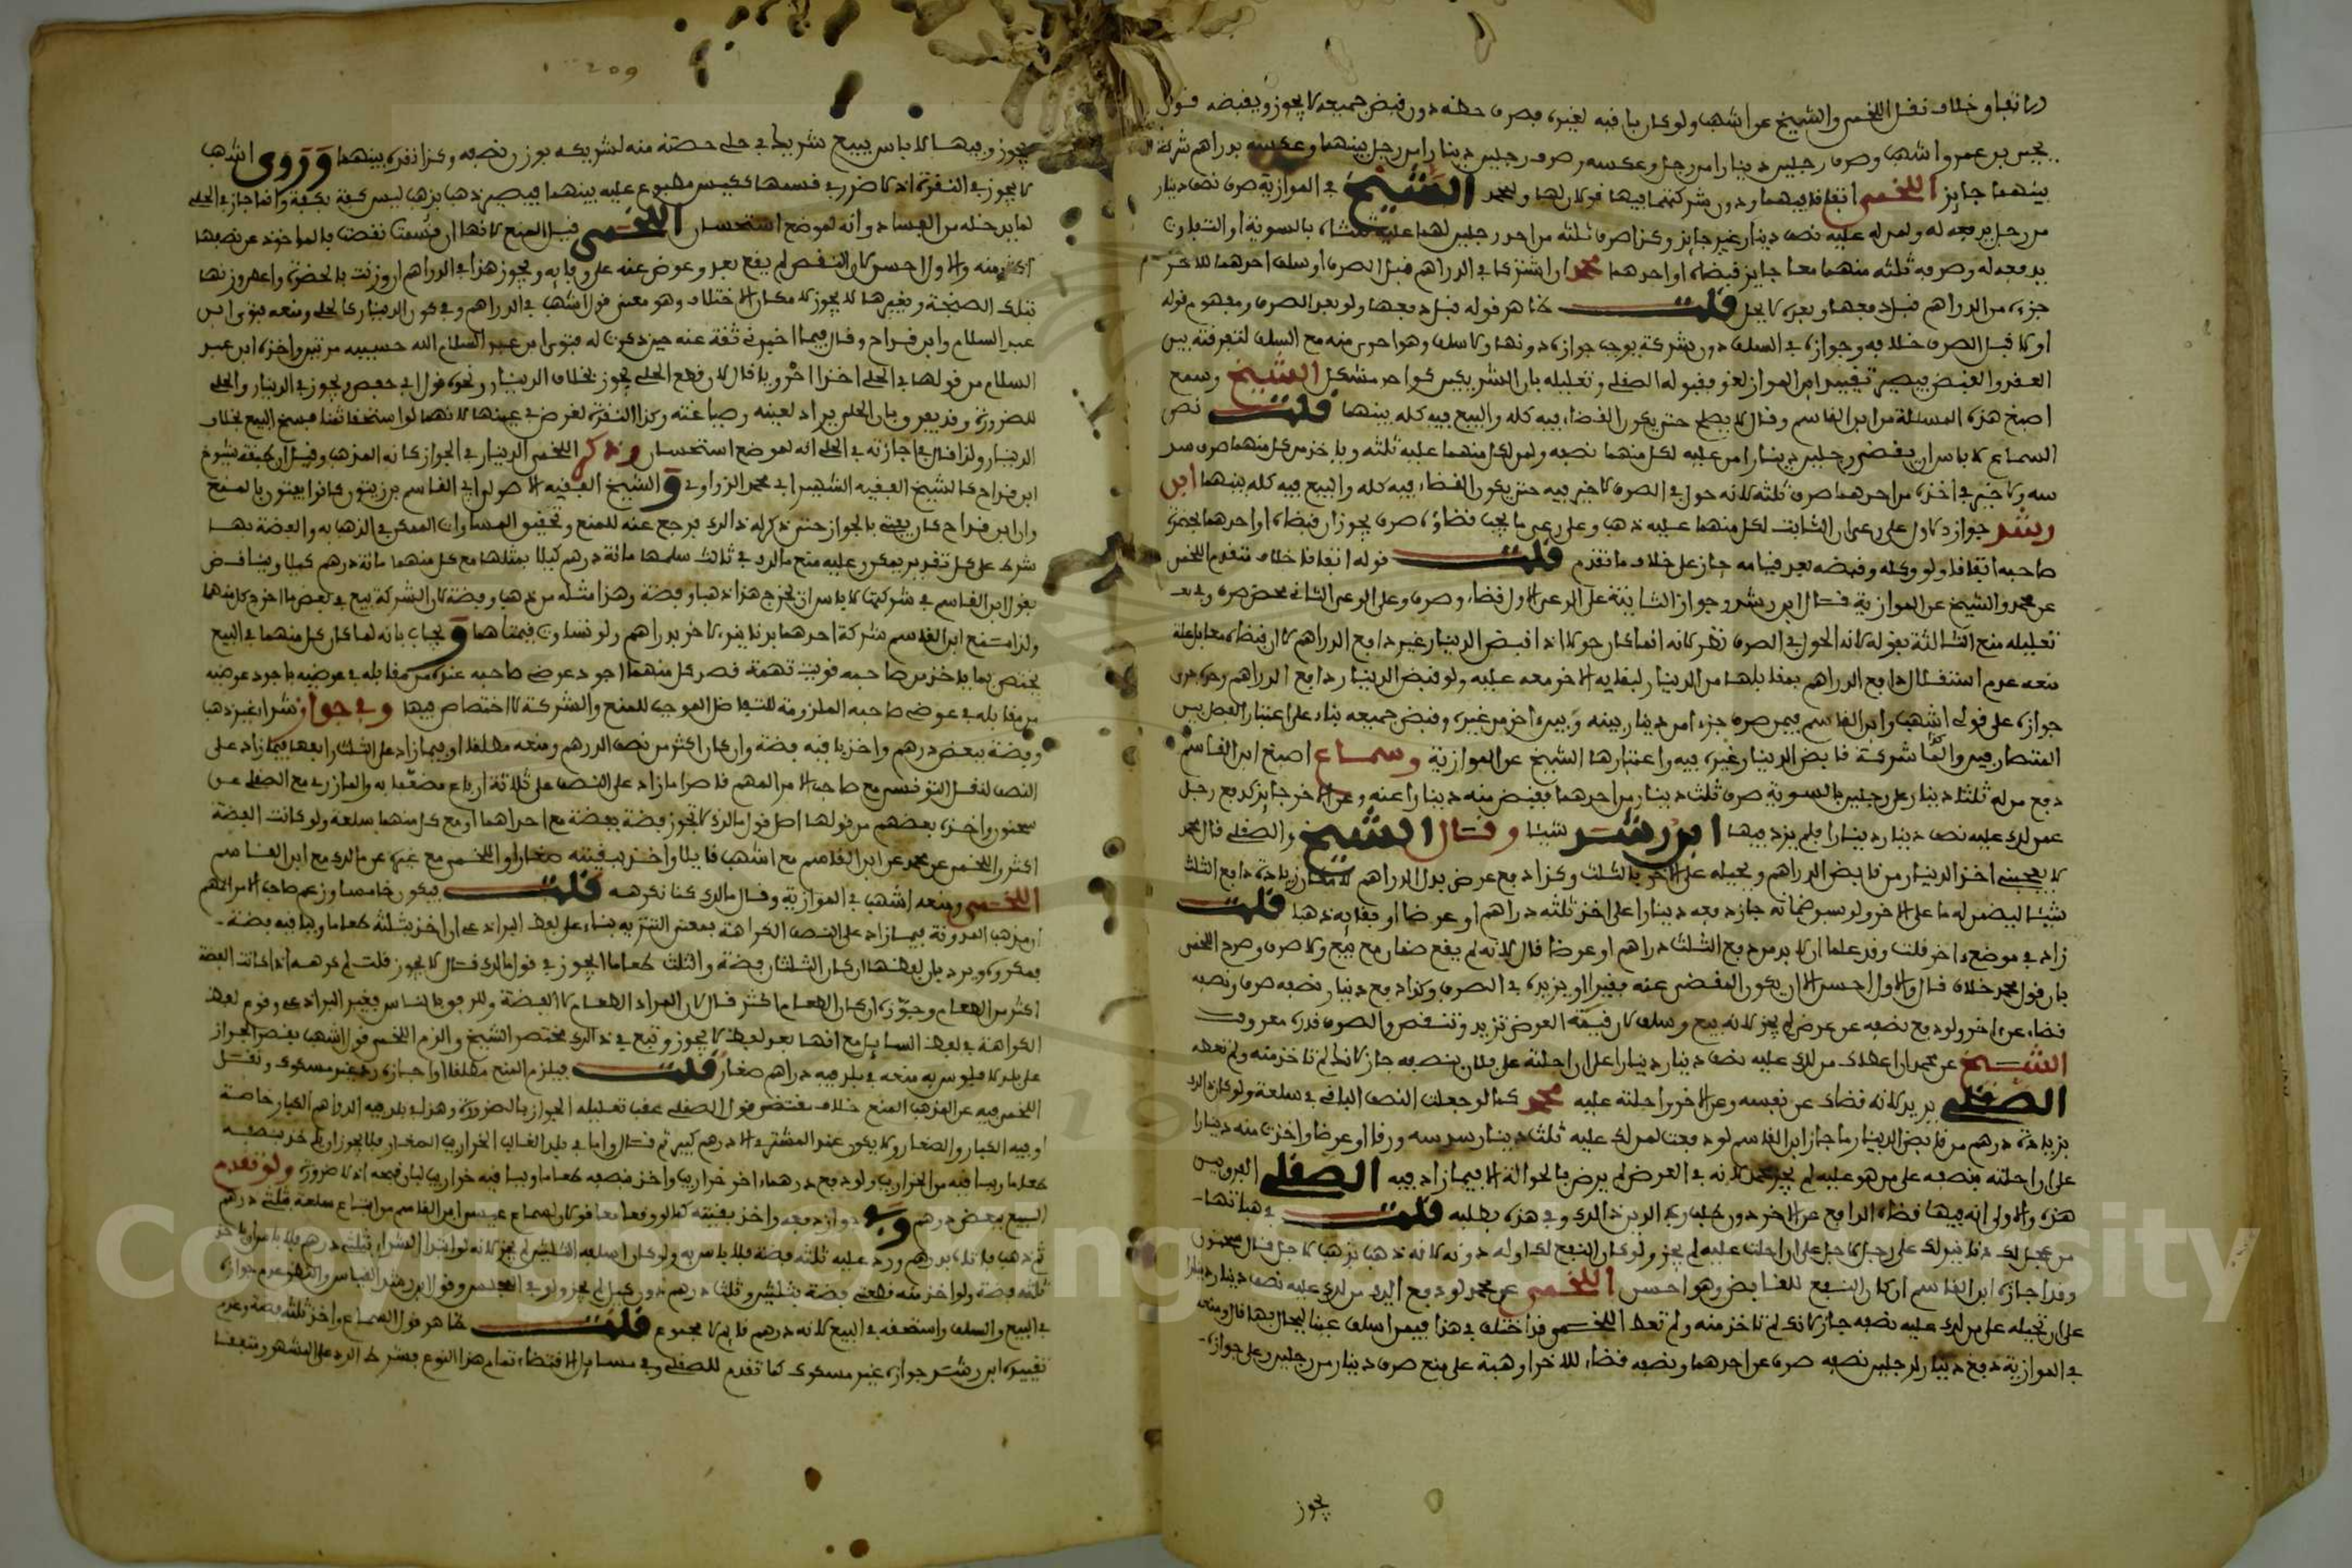 اتفاقا وخلاف نقل اللخمي والشيخ عن أشهب ولو كان ما فيه لغيره فصرف حظه دون قبض جميعه لا يجوز ويقبضه قول
يحيى بن عمر وأشهب وصرف رجلين دينارا من رجل وعكسه وصرف رجلين دينارا من رجل بينهما وعكسه بدراهم شركة
بينهما جايز اللخمي اتفاقا فيهما ودون شركتهما فيها قولان لها ولمحمد الشيخ في الموازية صرف نصف دينار
من رجل يدفعه له ولمن له عليه نصف دينار غير جايز وكذا صرف ثلثه من احد رجلين لهما عليه ثلثاه بالسوية او التفاوت
يدفعه له وصرفه ثلثه منهما معا جايز قبضاه او احدهما محمد ان اشتركا في الدراهم قبل الصرف او سلف احدهما للاخر
جزءه من الدراهم قبل دفعها وبعده لا يحل قلت ظاهر قوله قبل دفعها ولو بعد الصرف ومفهوم قوله
اولا قبل الصرف خلافه وجوازه في السلف دون شركة يوجب جوازه دونها ولا سلف وهو احرى منه مع السلف لتفرقته بين
العقد والقبض فيصير تقييد ابن المواز لغو وقبوله الصقلي وتعليله بان الشريكين كواحد مشكل الشيخ وسمع
اصبغ هذه المسئلة من ابن القاسم وقال لا يصلح حتى يكون القضاء فيه كله والبيع فيه كله بينهما قلت نص
السماع لا باس ان يقضي رجلين دينارا من عليه لكل منهما نصفه ولمن لكل منهما عليه ثلثه وياخذ من كل منهما صرف سد
سه ولا خير في اخذه من احدهما صرف ثلثه لانه حول في الصرف لا خير فيه حتى يكون القضاء فيه كله والبيع فيه كله بينهما ابن
رشد جواز الاول على رعي ان الثابت لكل منهما عليه ذهب وعلى رعي ما يجب قضاؤه صرف يجوز ان قبضاه او احدهما بحضرة
صاحبه اتفاقا ولو وكله وقبضه بعد قيامه جاز على خلاف ما تقدم قلت قوله اتفاقا خلاف متقدم اللخمي
عن محمد والشيخ عن الموازية قال ابن رشد وجواز الثانية على الرعي الاول قضاء وصرف وعلى الرعي الثاني محض صرف وفي
تعليله منع الثالثة بقوله لانه الحول في الصرف نظر لانه انما كان حولا اذا قبض الدينار غير دافع الدراهم لان قبضاه معا بل علة
منعه عدم استقلال دافع الدراهم بمقابلها من الدينار لبقايه الاخر معه عليه ولو قبض الدينار دافع الدراهم وحده جرى
جوازه على قولي اشهب وابن القاسم فيمن صرف جزءا من دينار بينه وبين اخر من غيره وقبض جميعه بناء على اعتبار الفصل بين
المتصارفين والغا شركة قابض الدينار غيره فيه واعتبارها الشيخ عن الموازية وسماع اصبغ ابن القاسم
دفع من له ثلثا دينار على رجلين بالسوية صرف ثلث دينار من احدهما فقبض منه دينارا عنه وعن الاخر جايز كدفع رجل
عمن لك عليه نصف دينار دينارا فلم يزد فيها ابن رشد شيئا وقال الشيخ والصقلي قال محمد
لا يعجبني اخذ الدينار من قابض الدراهم ويحيله على الاخر بالثلث وكذا دفع عرض بدل الدراهم لامكان زيادة دافع الثلث
شيئا ليضمن له ما على الاخر ولو سوضمانه جاز دفعه دينارا على اخذ ثلثه دراهم او عرضا او بقايه ذهبا قلت
زاد في موضع اخر قلت وقد علما ان لا بد من دفع الثلث دراهم او عرضا قال لانه لم يقع ضمان مع بيع ولا صرف وصرح اللخمي
بان قول محمد خلاف قال والاول احسن الا ان يكون المقضي عنه فقيرا او يزيده في الصرف وكذا دفع دينار نصفه صرف ونصفه
قضاء عن اخر ولو دفع نصفه عن عرض لم يجز لانه بيع وسلف لان قيمة العرض تزيد وتنقص والصرف قدره معروف
الشيخ عن محمد ان اعطاك من لك عليه نصف دينار دينارا على ان احلته على فلان بنصفه جاز كانك لم تاخذ منه ولم تعطه
الصقلي يريد لانه قضاك عن نفسه وعن الاخر واحلته عليه محمد كما لو جعلت النصف الباقي في سلعة ولو كان ذلك
بزيادة درهم من قابض الدينار ما جاز ابن القاسم لو دفعت لمن لك عليه ثلث دينار سدسه ورقا او عرضا واخذت منه دينارا
على ان احلته بنصفه على من هو عليه لم يجز محمد لانه في العرض لم يرض بالحوالة الا فيما زاد فيه الصقلي الفرق بين
هذه والاولى انه فيها قضاه الدافع عن الاخر دون طلب رب الدين ذلك وفي هذه بطلبه قلت في هباتها
من عجل لك دنانير لك على رجل لاجل على ان احلت عليه لم يجز ولو كان النفع لك اوله دونه لانه ذهب بذهب لاجل قال سحنون
وقد اجازه ابن القاسم ان كان النفع للقابض وهو احسن اللخمي عن محمد لو دفع اليك من لك عليه نصف دينار دينارا
على ان تحيله على من لك عليه نصفه جاز لانك لم تاخذ منه ولم تعط اللخمي وقد اختلف في هذا فيمن اسلف عينا ليحال بها قال ومنعه
في الموازية دفع دينار لرجلين نصفه صرف عن احدهما ونصفه قضاء للاخر او هبة على منع صرف دينار من رجلين وعلى جوازه
يجوز
209
يجوز وفيها لا باس ببيع شريك في حلي حصته منه لشريكه بوزن نصفه وكذا نقرة بينهما وروى اشهب
لا يجوز في النقرة اذ لا ضرر في قسمها ككيس مطبوع عليه بينهما فيصير ذهب بذهب ليس كفة بكفة وانما جاز في الحلي
لما يدخله من الفساد وانه لموضع استحسان اللخمي قيل المنع لانها ان قسمت نقصت فالماخوذ عن نصفها
اكثر منه والاول احسن لان النقص لم يقع بعد وعوض عنه على وفايه ويجوز هذا في الدراهم ان وزنت بالحضرة واعطى وزنها
بتلك الصنجة وبغيرها لا يجوز لامكان الاختلاف وهو معنى قول اشهب في الدراهم وفي كون الدينار كالحلي ومنعه فتوى ابن
عبد السلام وابن قداح وقال فيما اخبرني ثقة عنه حين ذكرت له فتوى ابن عبد السلام الله حسيبه مرتين واخذه ابن عبد
السلام من قولها في الحلي اخذا احرويا قال لان قطع الحلي يجوز بخلاف الدينار ونحوه قول ابي حفص يجوز في الدينار والحلي
للضرورة وقد يفرق بان الحلي يراد لعينه وصياغته وكذا النقرة لغرض في عينها لانهما لو استحقا ثمنا فسخ البيع بخلاف
الدينار ولذا قال في اجازته في الحلي انه لموضع استحسان وذكر اللخمي الدينار في الجواز كانه المذهب وقيل ان كيفية شيوخ
ابن قداح كالشيخ الفقيه الشهير ابي محمد الزواوي والشيخ الفقيه الاصولي ابي القاسم بن زيتون كانوا يفتون بالمنع
وان ابن قداح كان يفتي بالجواز حتى ذكر له ذلك فرجع عنه للمنع وتحقيق المساواة الممكن في الذهب به والفضة بها
شرط على كل تقدير يمكن وعليه منع مالك في ثالث سلمها مائة درهم كيلا بمثلها مع كل منهما مائة درهم كيلا ويناقض
بقول ابن القاسم في شركتها لا باس ان يخرج هذا ذهبا وفضة وهذا مثله من ذهب وفضة لان الشركة بيع في بعض ما اخرج كل منهما
ولذا منع ابن القاسم شركة احدهما بدنانير والاخر بدراهم ولو تساوت قيمتاهما ويجاب بانه لما كان كل منهما في البيع
يختص بما ياخذ من صاحبه قويت تهمة قصد كل منهما اجود عوض صاحبه عنده من مقابله في عوضيه باجود عوضيه
من مقابله في عوض صاحبه الملزومة للتفاضل الموجب للمنع والشركة لا اختصاص فيها وفي جواز شراء غير ذهب
وفضة ببعض درهم واخذ باقيه فضة وان كان اكثر من نصف الدرهم ومنعه مطلقا او فيما زاد على الثلث رابعها فيما زاد على
النصف لنقل التونسي مع صاحب الامر المهم قاصرا ما زاد على النصف على ثلاثة ارباع مضعفا به والمازري مع الصقلي عن
سحنون واخذه بعضهم من قولها اصل قول مالك لا تجوز فضة بفضة مع احداهما او مع كل منهما سلعة ولو كانت الفضة
اكثر واللخمي عن محمد عن ابن القاسم مع اشهب قايلا واخذ بقيته صغارا واللخمي مع غيره عن مالك مع ابن القاسم
اللخمي ومنعه اشهب في الموازية وقال مالك كنا نكرهه قلت فيكون خامسا وزعم صاحب الامر المهم
ان مذهب المدونة فيما زاد على النصف الكراهة بمعنى التنزيه بناء على لفظ البراذعي ان اخذ بثلثه طعاما وباقيه فضة
فمكروه ويرد بان لفظها ان كان الثلثان فضة والثلث طعاما ايجوز في قول مالك قال لا يجوز قلت لم كرهه اذا كانت الفضة
اكثر من الطعام وجوزه ان كان الطعام اكثر قال لان المراد الطعام لا الفضة وللرفو بالناس فتغير البراذعي وقوم لفظ
الكراهة في لفظ السايل مع انها بعد لفظ لا يجوز وتبع في ذلك مختصر الشيخ والزم اللخمي قول اشهب بقصر الجواز
على بلد لا فلوس به منعه في بلد فيه دراهم صغار قلت فيلزم المنع مطلقا او اجازة رد غير مسكوك ونقل
اللخمي فيه عن المذهب المنع خلاف مقتضى قول الصقلي عقب تعليله الجواز بالضرورة وهذا في بلد فيه الدراهم الكبار خاصة
او فيه الكبار والصغار ولا يكون عند المشتري الا درهم كبير ثم قال واما في بلد الغالب الخراريب الصغار فلا يجوز ان ياخذ بنصفه
طعاما وبباقيه من الخراريب ولو دفع درهما اخر خراريب واخذ بنصفه طعاما وبباقيه خراريب لبان قبحه اذ لا ضرورة ولو تقدم
البيع ببعض درهم وبه دفعه واخذ بقيته كما لو وقعا معا قولان لسماع عيسى ابن القاسم من ابتاع سلعة بثلثي درهم
ثم ذهب فاتاه بدرهم ورد عليه ثلثه فضة فلا باس به ولو كان اسلفه الثلثين لم يجز لانه لو ابتدا الشراء بثلثي درهم فلا باس ان ياخذ
ثلثه فضة ولو اخذ منه قطعتي فضة بثلثين وثلث درهم دون كيل لم يجز ولو في المجلس وقول ابن رشد القياس والنظر عدم جوازه
في البيع والسلف واستخفه في البيع لانه درهم قايم لا مجموع قلت ظاهر قول السماع واخذ ثلثه فضة وعدم
تقييده ابن رشد جوازه غير مسكوك كما تقدم للصقلي وفي مسايل الاقتضاء تمام هذا النوع بشرط الرد على المشهور